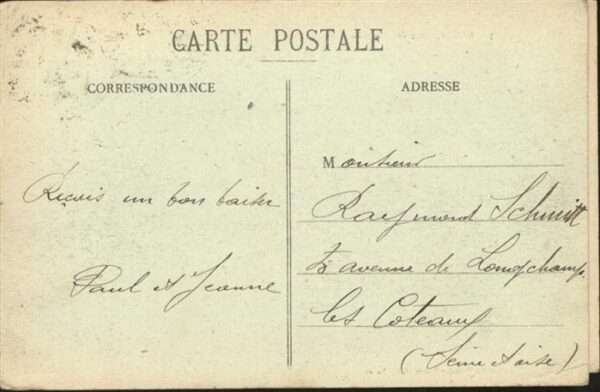 CARTE POSTALE
CORRESPONDANCE
ADRESSE
Reçois un bon baiser
Paul et Jeanne
Monsieur
Raymond Schmitt
avenue de Longchamp
les Coteaux
(Seine & Oise)